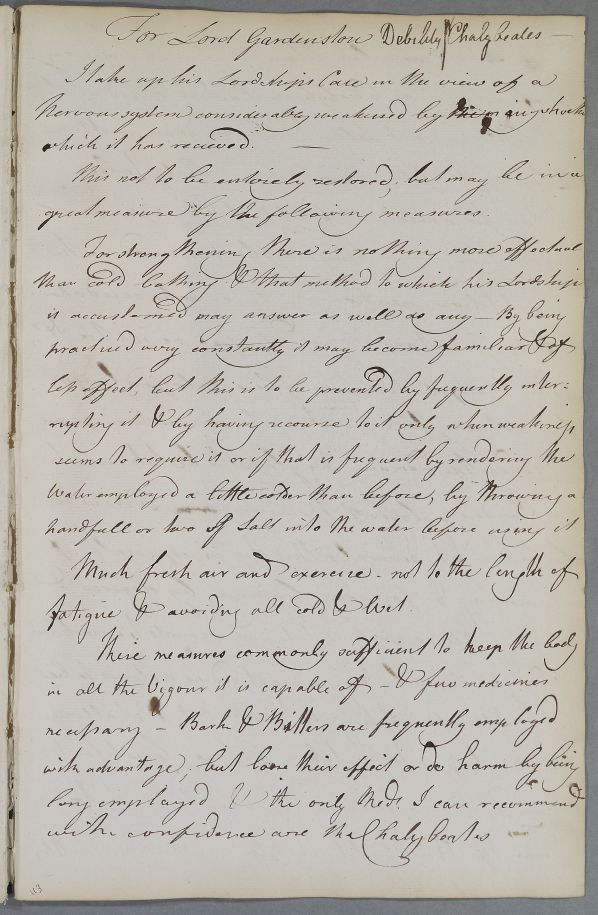 For Lord Gardenston Debility / Chalybeates —
I take up his Lordships Case in the view of a
Nervous system considerably weakened by the many shocks
which it has recieved. —
This not to be entirely restored, but may be in a
great measure by the following measures.
For strengthening there is nothing more effectual
than cold bathing & that method to which his Lordship
is accustomed may answer as well as any — By being
practised very constantly it may become familiar & of
less effect, but this is to be prevented by frequently inter=
rupting it & by having recourse to it only when weakness
seems to require it or if that is frequent by rendering the
Water employed a little colder than before, by throwing a
handfull or two of Salt into the water before using it
Much fresh air and exercise - not to the length of
fatigue & avoiding all cold & Wet.
These measures commonly sufficient to keep the body
in all the Vigour it is capable of — & few medicines
necessary — Bark & Bitters are frequently employed
with advantage, but lose their effect or do harm by being
long employed & the only Meds. I can recommend
with confidence are the Chalybeates
113